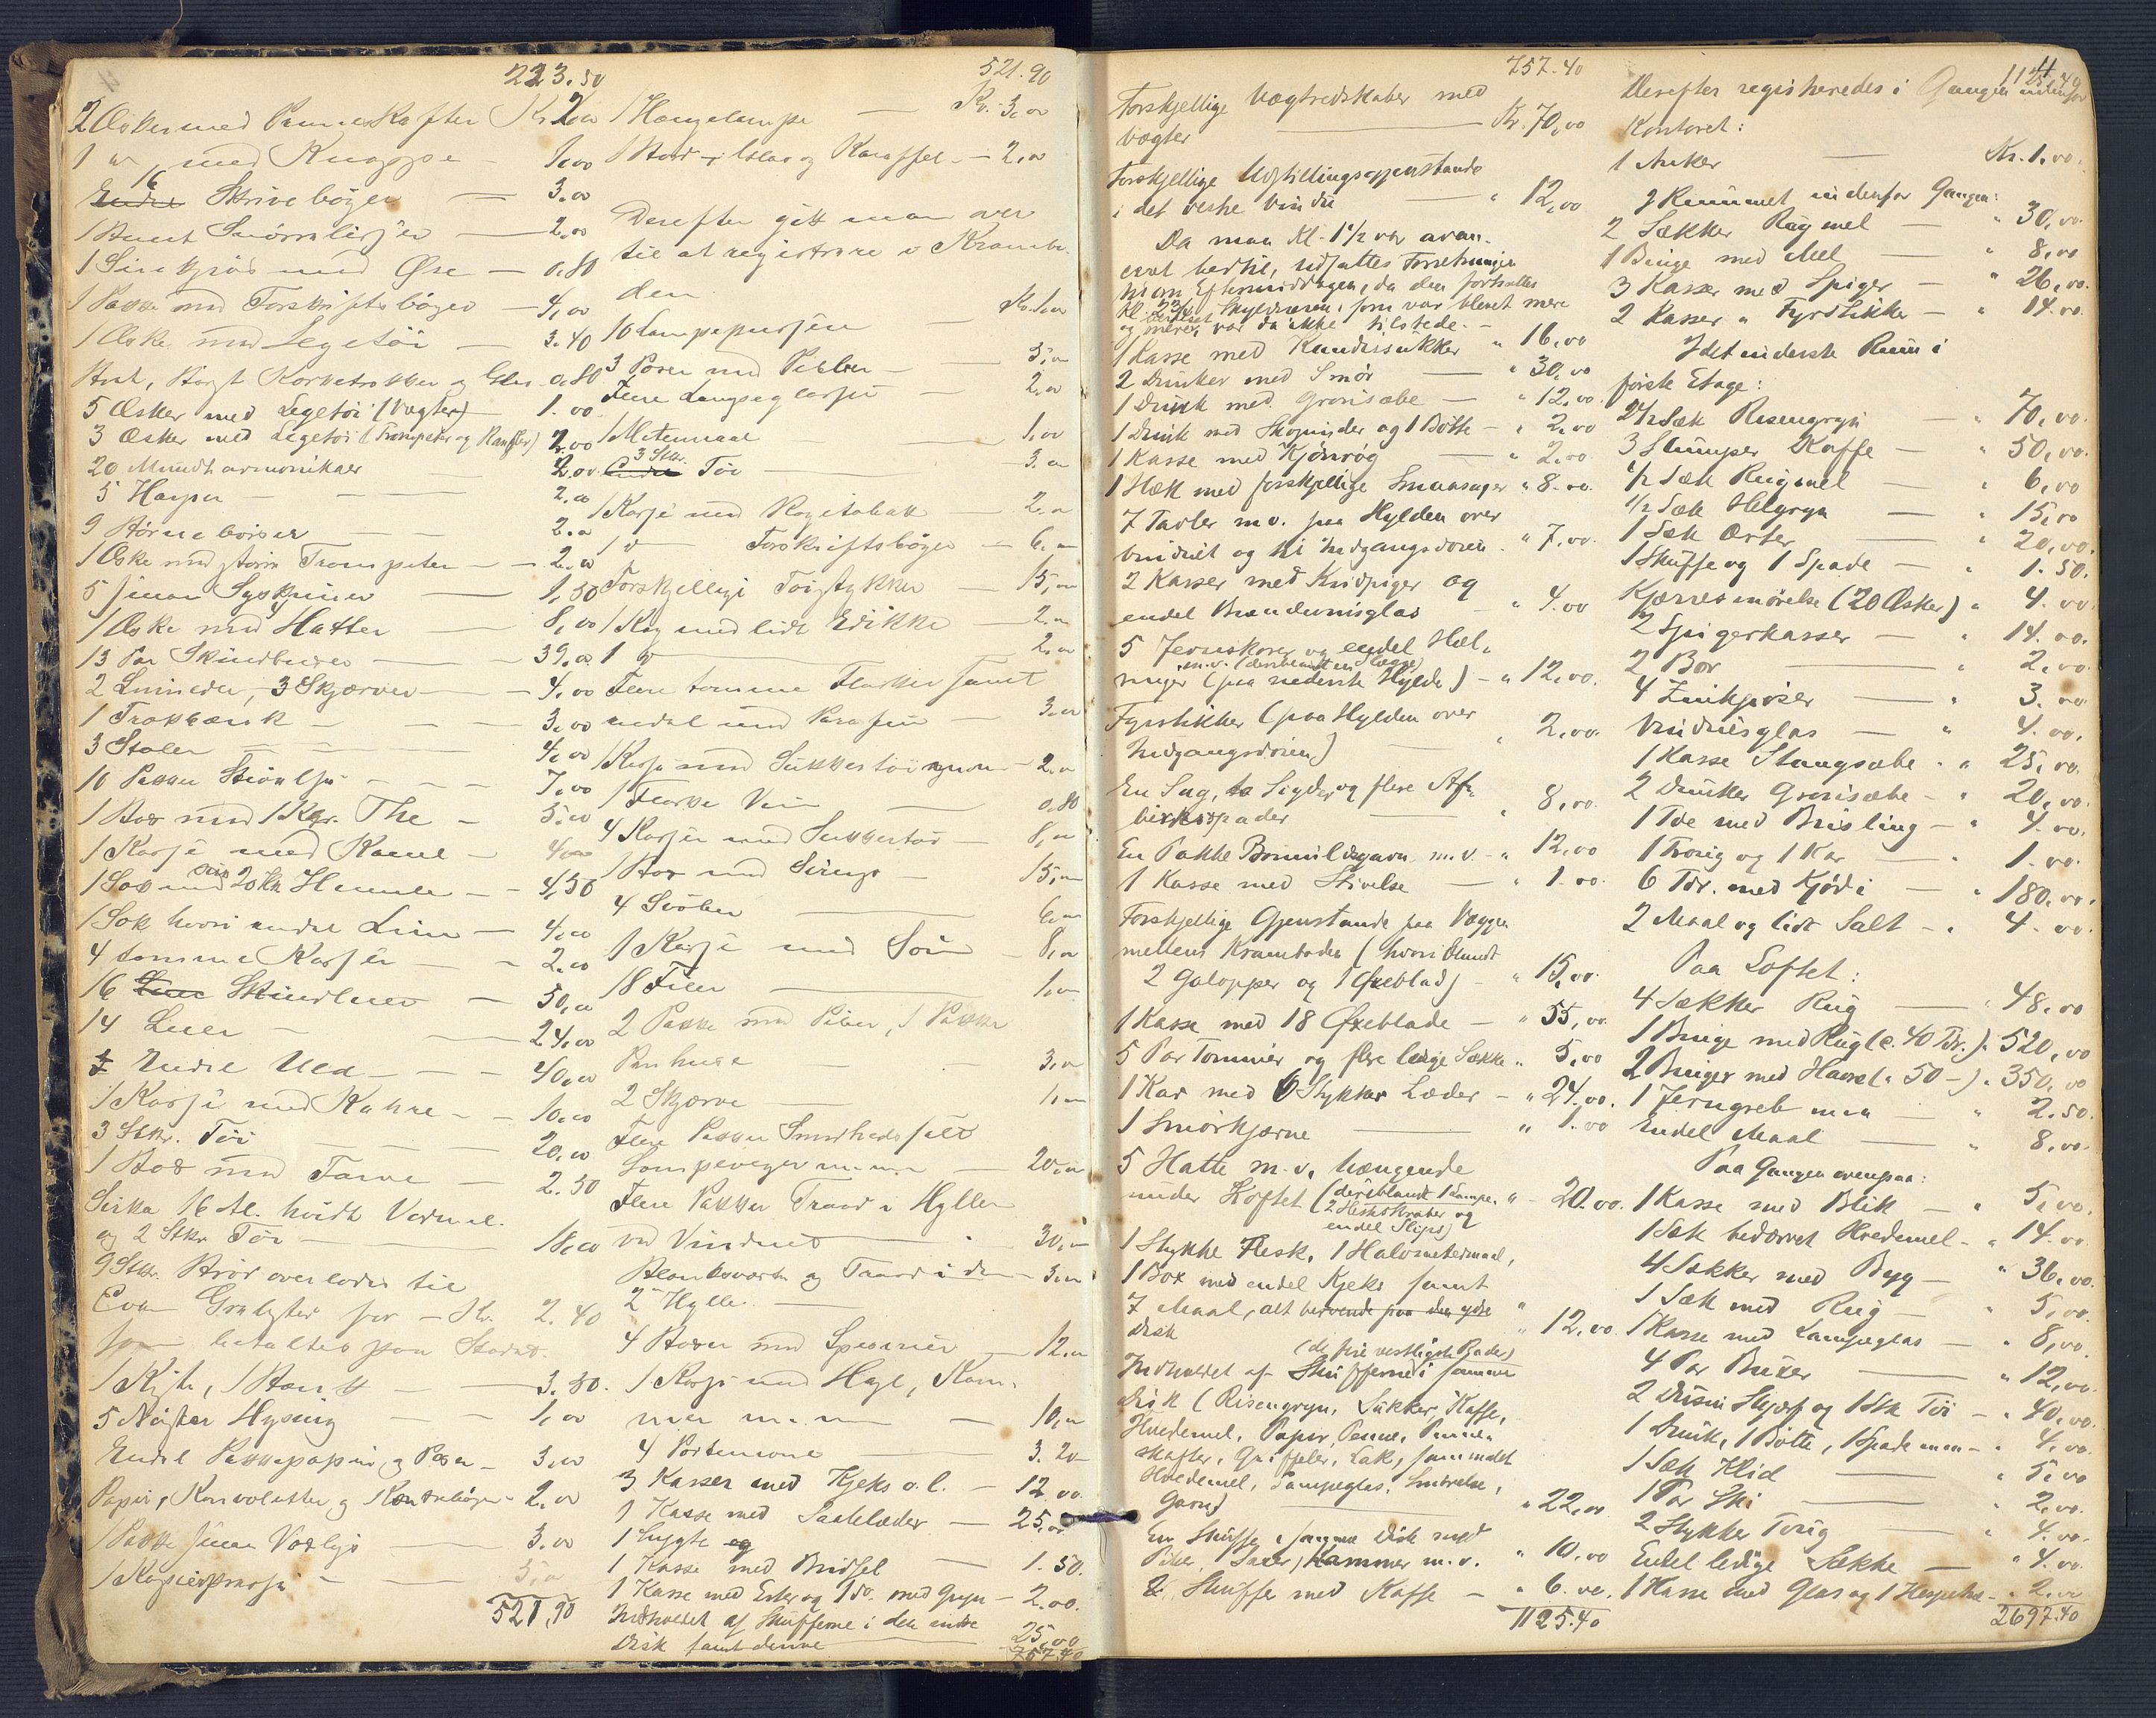 223.50
2 Æsker med Penneskafter Kr 2,00
1 do med Knappe - 1,00
16 Skrivebøger - 3,00
1 Bundt Snørelisser - 2,00
1 med Øse - 0,80
1 Pakke med Forskriftsbøger - 4,00
1 Æske med Legetøi - 3.40
Korketrækker og 0,80
5 Æsker med Legetøi (Vægter) 1.00
3 Æsker med Legetøi (Trompeter og Rangler) 2,00
20 Mundharmonikaer 2.00
5 Harper - 2,00
9 - 2.00
1 Æske med større Trompeter - 2.00
5 1,50
1 Æske med Hatter 8,00
13 Par Skindbuxer 39.00
2 3 Skjærver 4,00
1 - 3,00
3 Stoler 4,00
10 Pakker 7,00
1 Box med 1 Kgr. The - 5.00
1 med Kanel - 4,00
1 med 20 Humle - 4,50
1 Sæk hvori endel Lim - 4,00
4 tomme - 2.00
16 Skindluer - 50,00
14 Luer - 24,00
Endel Uld - 40,00
1 med - 10,00
3 Stkr. Tøi 20,00
1 Box med Farve - 2.50
Sirka 16 Al. hvidt Vadmel
og 2 Stkr Tøi 18,00
9 Stkr. overlodes til
for - Kr. 2.40
som betaltes paa Stedet.
1 - 3.50.
5 Nøster Hysing - 1,00
Endel Pakkepapir og Poser - 3,00
Papir, Konvolutter og - 2.00
1 Pakke - 3.00
1 Kopierpresse - 5,00
521,90
521.90
1 Hængelampe Kr. 3,00
1 Glas og Karaffel - 2,00
Derefter gik man over
til at registrere i Krambo-
den
10 Kr. 1,00
3 Poser med - 5,00
Flere Lampeglas 2,00
1 1,00
3 Stkr. Tøi 3,00
1 med Røgetobak 2,00
1 do Forskriftsbøger - 6,00
Forskjellige Tøistykker - 15,00
1 med lidt Edikke 2,00
1 do 2,00
Flere tomme Flasker samt
endel med Parafin - 3,00
1 med Sukkertøi 2,00
1 Flaske Vin 0,80
4 med Sukkertøi - 8,00
1 Box med Sirup - 15,00
4 6,00
1 med Søm - 8,00
18 Filer 1,00
2 Pakke med Piber, 1 Pakke
3,00
2 Skjærve 1,00
Flere Pakker
Lampevæger m.m. - 20,00
Flere Pakker Traad i Hyllen
ved Vinduet 30,00
Blanksværte og Traad i den 3,00
2 Hylle
4 Boxer med 12,00
1 med Hagl, Kam-
mer m.m. - 10,00
4 Portemone 3.20
3 Kasser med Kjeks o.l. - 12.00.
1 Kasse med Saalelæder - 25,00.
1 Lygte
1 Kasse med Bridsel - 1.50.
1 Kasse med Erter og 1 do. med Gryn - 2.00.
Indholdet af Skufferne i den indre
Disk samt denne 25,00
757.40
757.40
Forskjellige Vægtredskaber med
Vægter Kr. 70,00
Forskjellige Udstillingsgjenstande
i det vestre Vindu " 12,00
Da man Kl. 1½ var avan-
ceret hertil, udsattes Forretningen
til om Eftermiddagen, da den fortsattes
Kl. Skyldneren, som var blevet mere
og mere, var da ikke tilstede. -
1 Kasse med Kandissukker " 16,00
2 Dunker med Smør " 30,00
1 Dunk med Grønsæbe - " 12,00.
1 Dunk med og 1 Bøtte - " 2,00
1 Kasse med Kjønrøg " 2.00.
1 Stk med forskjellige Smaasager " 8.00.
7 Tavler m.v. paa Hylden over
Vinduet og til Indgangsdøren. " 7,00.
2 Kasser med Kridpiger og
endel Brændevinsglas - " 4.00
5 Jernskoer og endel Hæl-
m.v. (deriblandt en Slægge)
ringer (paa nederste Hylde) - " 12,00.
Fyrstikker (paa Hylden over
Indgangsdøren) " 2,00.
En Sag, to Sigder og flere Ar-
beidsspader " 8,00.
En Pakke Bomuldsgarn m.v. - " 12,00
1 Kasse med Stivelse " 1.00.
Forskjellige Gjenstande paa Væggen
mellem Kramboden (hvori iblandt
2 Galopper og 1 Øxeblad) - " 15,00.
1 Kasse med 18 Øxeblade - " 55,00.
5 Par Tømmer og flere ledige Sække " 5,00
1 Kar med 6 Stykker Læder - " 24.00.
1 Smørkjærne " 1.00
5 Hatte m.v. hængende
under Loftet (deriblandt 1 Lampe, " 20.00.
2 og
endel Slips)
1 Stykke Flesk, 1 Halvmetermaal,
1 Box med endel Kjeks samt
7 Maal, alt
Disk " 12,00
(de fire vestligste Rader)
Indholdet af Skufferne i samme
Disk (Risengryn, Sukker, Kaffe,
Hvedemel, Papir, Penne, Penne-
skafter, Grifler, Lak, sammalt
Hvedemel, Lampeglas, Smørelse,
Garn) " 22,00
En Skuffe i samme Disk med
Piber, Saxer, Kammer m.v. " 10,00
2 Skuffer med Kaffe - " 6.00.
1125.40
11
1125.40
Derefter registreredes i Gangen indenfor
Kontoret:
1 Anker Kr. 1,00.
I Rummet indenfor Gangen:
2 Sækker Rugmel " 30,00.
1 Binge med Mel " 8,00
3 Kasser med Spiger " 26,00.
2 Kasser " Fyrstikker - " 14.00.
I det inderste Rum i
første Etage:
2½ Sæk Risengryn " 70,00.
3 Slumper Kaffe " 50,00.
½ Sæk Rugmel " 6,00
½ Sæk Helgryn " 15,00
1 Sæk Erter " 20,00.
1 Skuffe og 1 Spade - " 1.50.
Kjærresmørelse (20 Æsker) " 4.00
2 Spigerkasser " 14.00.
2 Bor " 2,00.
4 Zinkpøser " 3.00
Vinduesglas " 4.00.
1 Kasse Stangsæbe - " 25,00.
2 Dunker Grønsæbe - " 20,00.
1 Tde med Brisling - " 4.00.
1 Traug og 1 Kar 1.00.
6 Tdr. med Kjød i " 180,00.
2 Maal og lidt Salt - " 4.00.
Paa Loftet:
4 Sækker Rug " 48,00
1 Binge med Rug (c. 40 Tdr.) " 520,00
2 Binger med Havre (" 50 -) " 350,00
1 Jerngreb m.m. " 2.50.
Endel Maal " 8,00.
Paa Gangen ovenpaa:
1 Kasse med Blik " 5,00.
1 Sæk bedærvet Hvedemel - " 14.00.
4 Sækker med Byg " 36,00.
1 Sæk med Rug " 5,00.
1 Kasse med Lampeglas - " 8,00.
4 Par Buxer " 12,00.
2 Dusin Skjærf og 1 Stk Tøi - " 40,00.
1 Dunk, 1 Bøtte, 1 Spade m.m. - " 4,00.
1 Sæk Klid " 5,00
1 Par Ski " 2,00.
2 Stykker Toug " 4.00.
Endel ledige Sække " 4.00.
1 Kasse med Glas og 1 " 2.00
2697.40